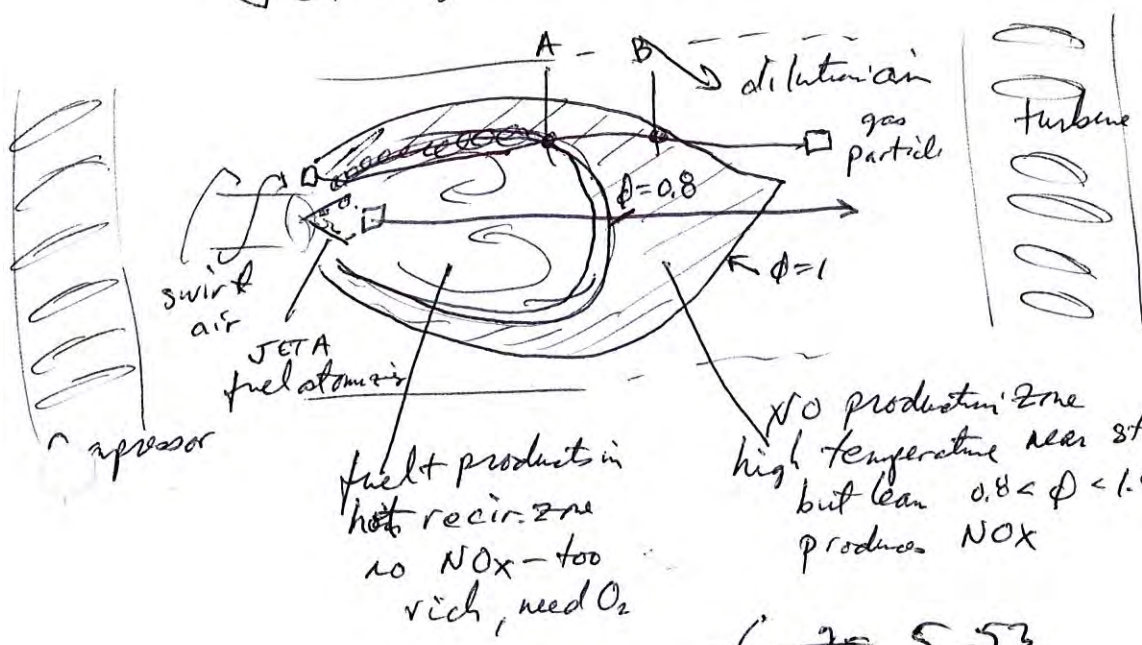 A
B
dilution air
gas
particle
turbine
ϕ=0.8
ϕ=1
swirl
air
JET A
fuel atomizer
fuel + products in
hot recir. zone
no NOx - too
rich, need O2
NO production zone
high temperature near
but lean 0.8 < ϕ < 1.
produces NOX
5.53